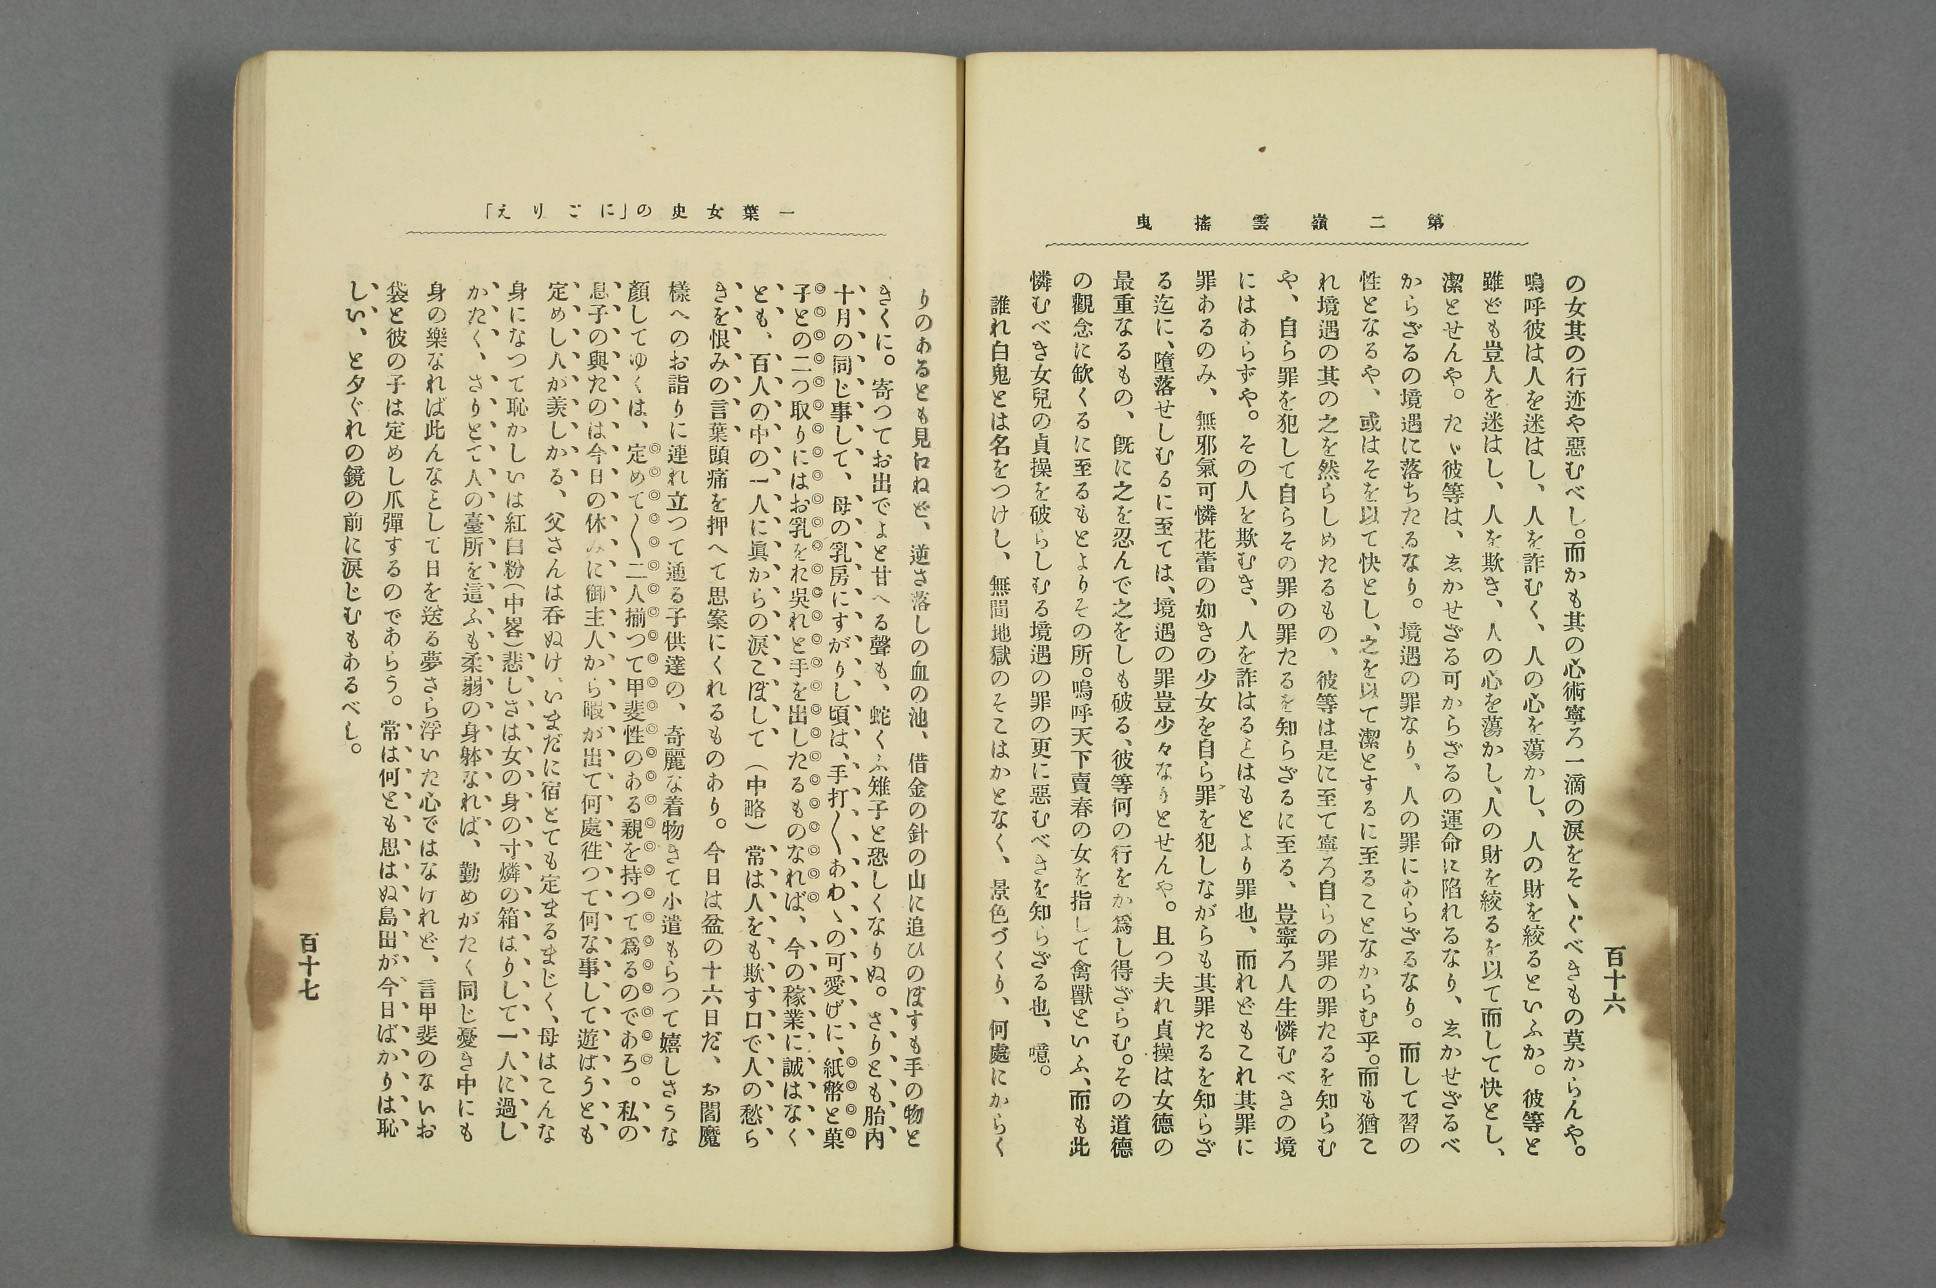 第二嶺雲搖曳
百十六
の女其の行迹や惡むべし。而かも其の心術寧ろ一滴の淚をそゝぐべきもの莫からんや。
嗚呼彼は人を迷はし、人を詐むく、人の心を蕩かし、人の財を絞るといふか。彼等と
雖ども豈人を迷はし、人を欺き、人の心を蕩かし、人の財を絞るを以て而して快とし、
潔とせんや。たゞ彼等は、志かせざる可からざるの運命に陷れるなり、志かせざるべ
からざるの境遇に落ちたるなり。境遇の罪なり、人の罪にあらざるなり。而して習の
性となるや、或はそを以て快とし、之を以て潔とするに至ることなからむ乎。而も猶こ
れ境遇の其の之を然らしめたるもの、彼等は是に至て寧ろ自らの罪の罪たるを知らむ
や、自ら罪を犯して自らその罪の罪たるを知らざるに至る、豈寧ろ人生憐むべきの境
にはあらずや。その人を欺むき、人を詐はるとはもとより罪也、而れどもこれ其罪に
罪あるのみ、無邪氣可憐花蕾の如きの少女を自ら罪を犯しながらも其罪たるを知らざ
る迄に、墮落せしむるに至ては、境遇の罪豈少々なりとせんや。且つ夫れ貞操は女德の
最重なるもの、旣に之を忍んで之をしも破る、彼等何の行をか爲し得ざらむ。その道德
の觀念に欿くるに至るもとよりその所。嗚呼天下賣春の女を指して禽獸といふ、而も此
憐むべき女兒の貞操を破らしむる境遇の罪の更に惡むべきを知らざる也、噫。
誰れ白鬼とは名をつけし、無間地獄のそこはかとなく、景色づくり、何處にからく
一葉女史の「にごりえ」
りのあるとも見江ねど、逆さ落しの血の池、借金の針の山に追ひのぼすも手の物と
きくに。寄つてお出でよと甘へる聲も、蛇くふ雉子と恐しくなりぬ。さりとも胎內
十月の同じ事して、母の乳房にすがりし頃は、手打〱あわゝの可愛げに、紙幣と菓
子との二つ取りにはお乳をおくれと手を出したるものなれば、今の稼業に誠はなく
とも、百人の中の一人に眞からの淚こぼして（中略）常は人をも欺す口で人の愁ら
きを恨みの言葉頭痛を押へて思案にくれるものあり。今日は盆の十六日だ、お閻魔
樣へのお詣りに連れ立つて通る子供達の、奇麗な着物きて小遣もらつて嬉しさうな
顏してゆくは、定めて〱二人揃つて甲斐性のある親を持つて爲るのであろ。私の
息子の與たのは今日の休みに御主人から暇が出て何處徃つて何な事して遊ばうとも
定めし人が羨しかる、父さんは呑ぬけ、いまだに宿とても定まるまじく、母はこんな
身になつて恥かしいは紅白粉（中畧）悲しさは女の身の寸燐の箱はりして一人に過し
かたく、さりとて人の臺所を這ふも柔弱の身躰なれば、勤めがたく同じ憂き中にも
身の樂なれば此んなとして日を送る夢さら浮いた心ではなけれど、言甲斐のないお
袋と彼の子は定めし爪彈するのであらう。常は何とも思はぬ島田が今日ばかりは恥
しい、と夕ぐれの鏡の前に淚じむもあるべし。
百十七